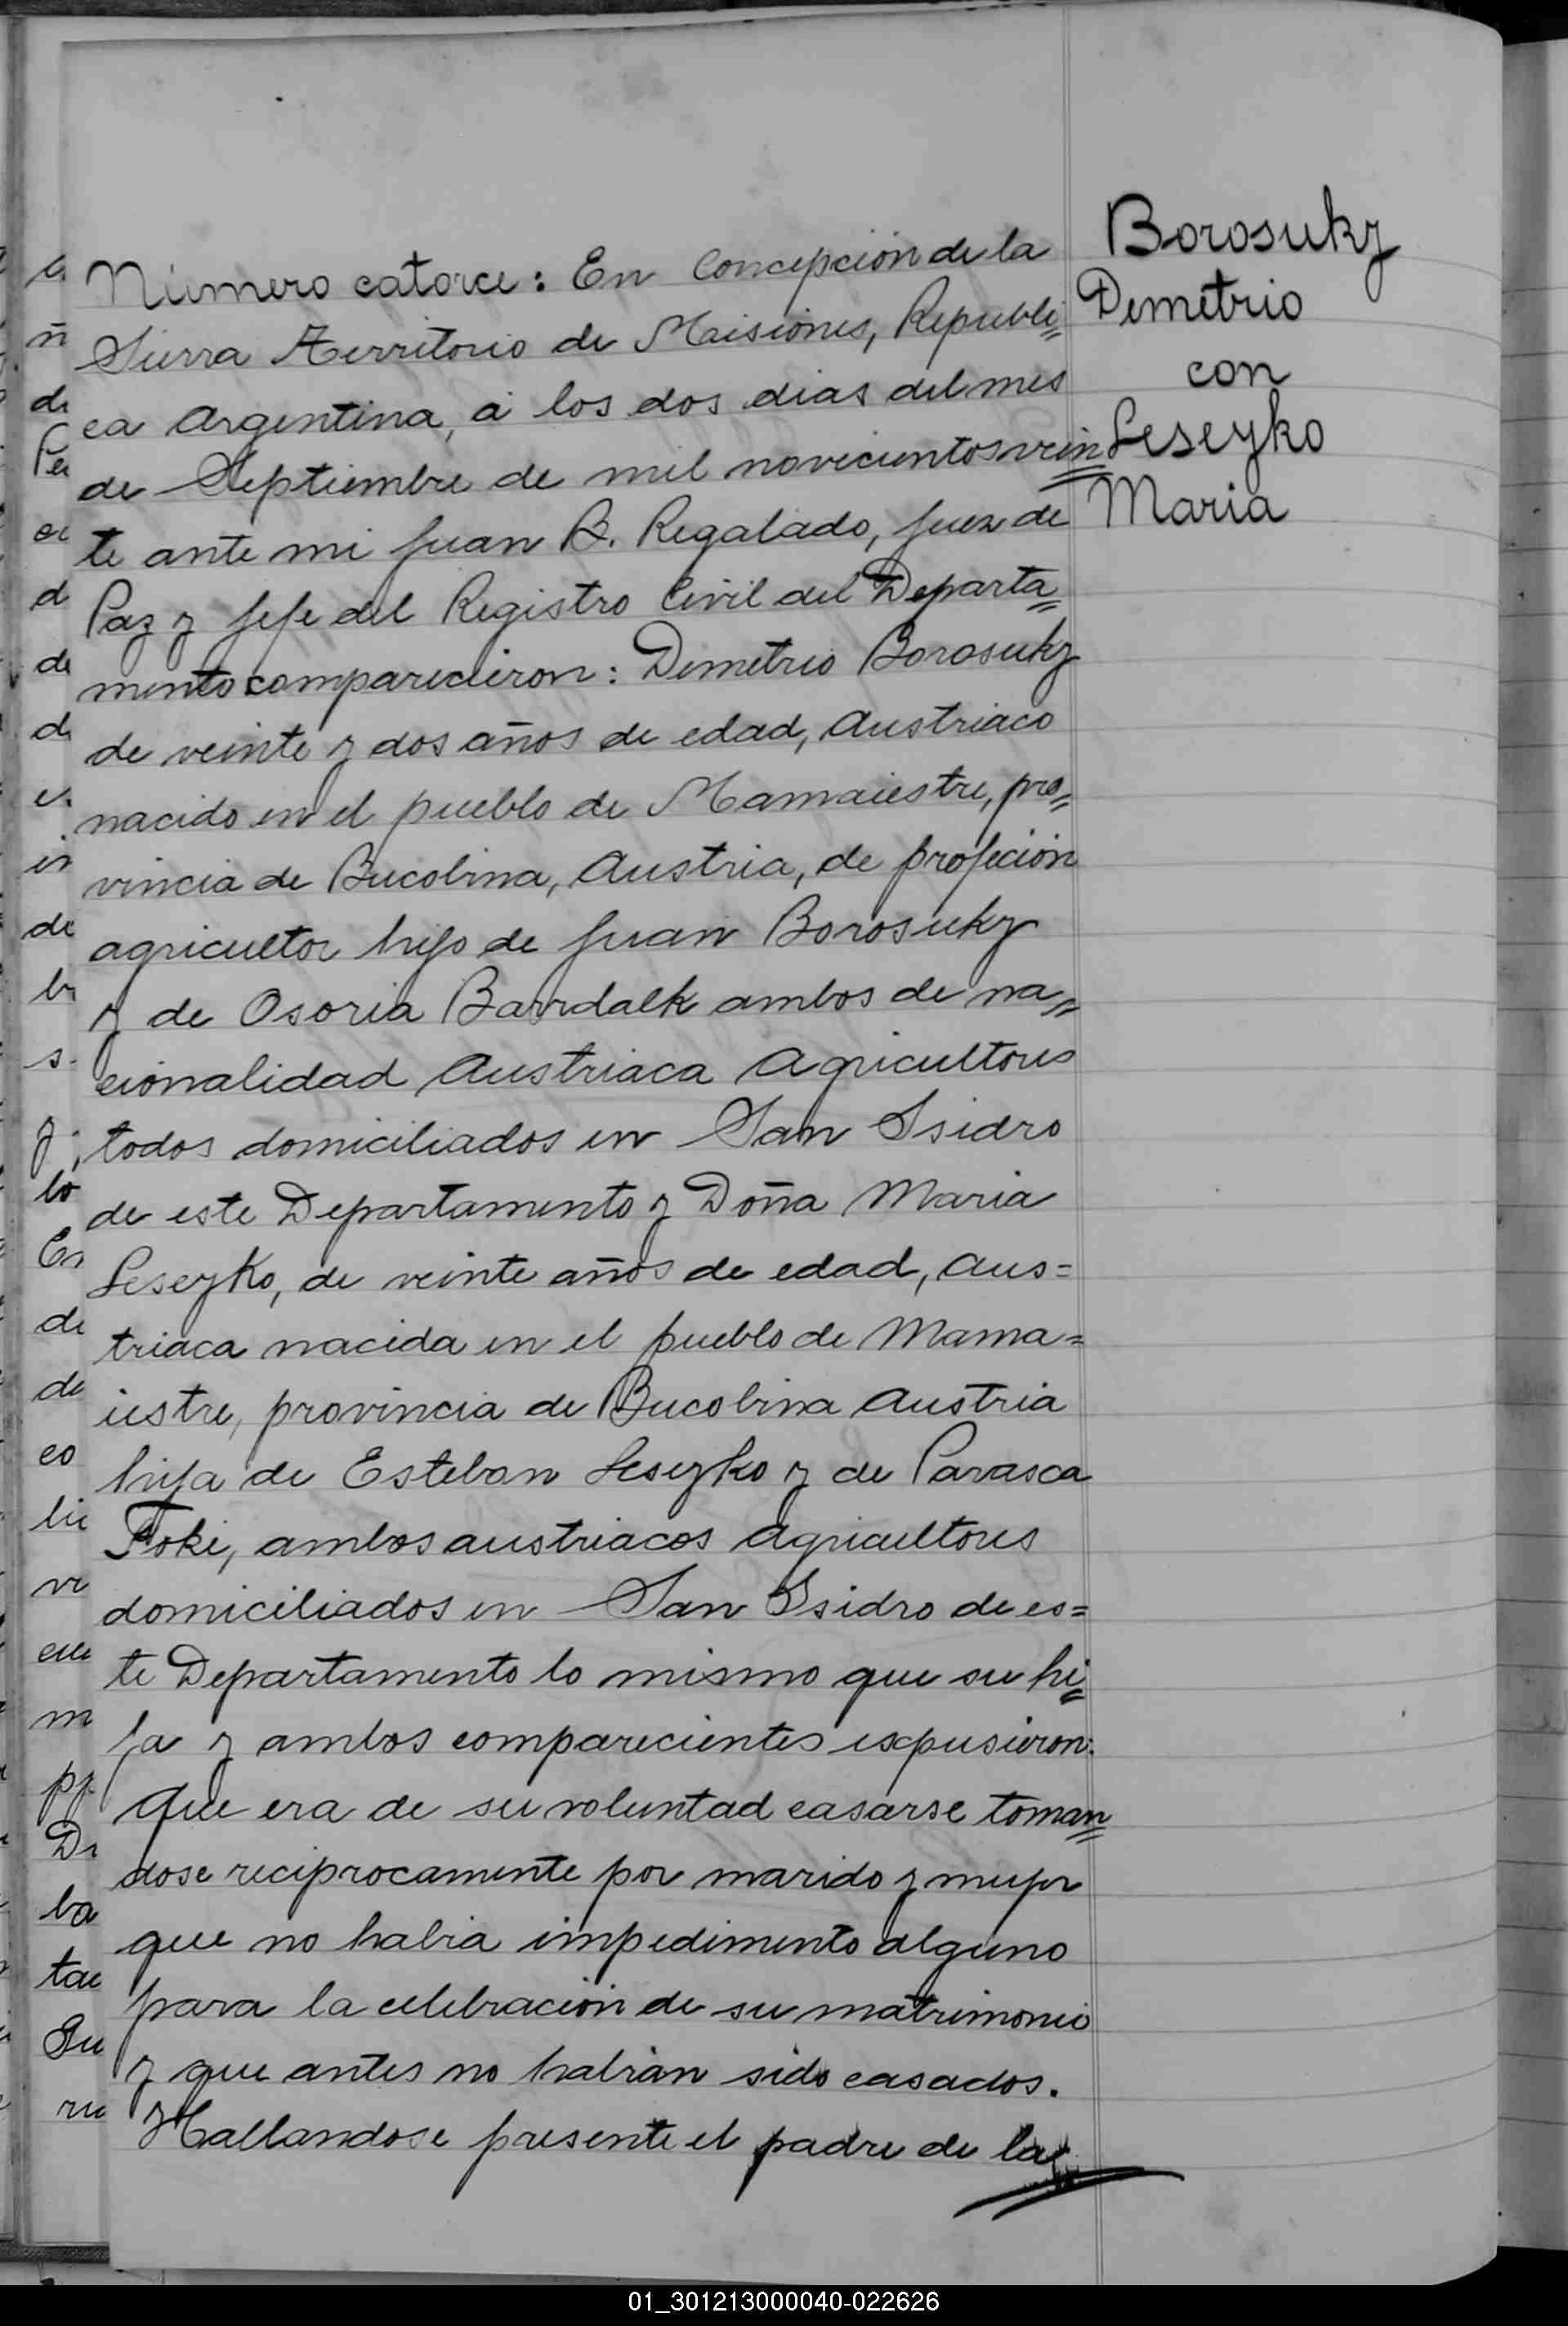 Número catorce: En Concepción de la
Sierra Territorio de Misiones, Republi=
ca Argentina, á los dos dias del mes
de Septiembre de mil novecientos vein=
te ante mi Juan B. Regalado, Juez de
Paz y Jefe del Registro Civil del Departa=
mento comparecieron: Demetrio Borosuky
de veinte y dos años de edad, Austriaco
nacido en el pueblo de Mamaiestre, pro=
vincia de Bucobina, Austria, de profeción
agricultor hijo de Juan Borosuky
y de Osoria Barrdalk ambos de na=
cionalidad Austriaca Agricultores
todos domiciliados en San Isidro
de este Departamento y Doña Maria
Leseyko, de veinte años de edad, Aus=
triaca nacida en el pueblo de Mama=
iestre, provincia de Bucobina Austria
hija de Esteban Leseyko y de Parasca
Foki, ambos austriacos agricultores
domiciliados en San Isidro de es=
te Departamento lo mismo que su hi=
ja y ambos comparecientes expusieron:
Que era de su voluntad casarse toman=
dose reciprocamente por marido y mujer
que no habia impedimento alguno
para la celebración de su matrimonio
y que antes no habian sido casados.
Hallandose presente el padre de la
Borosuky
Demetrio
con
Leseyko
Maria
01_301213000040-022626